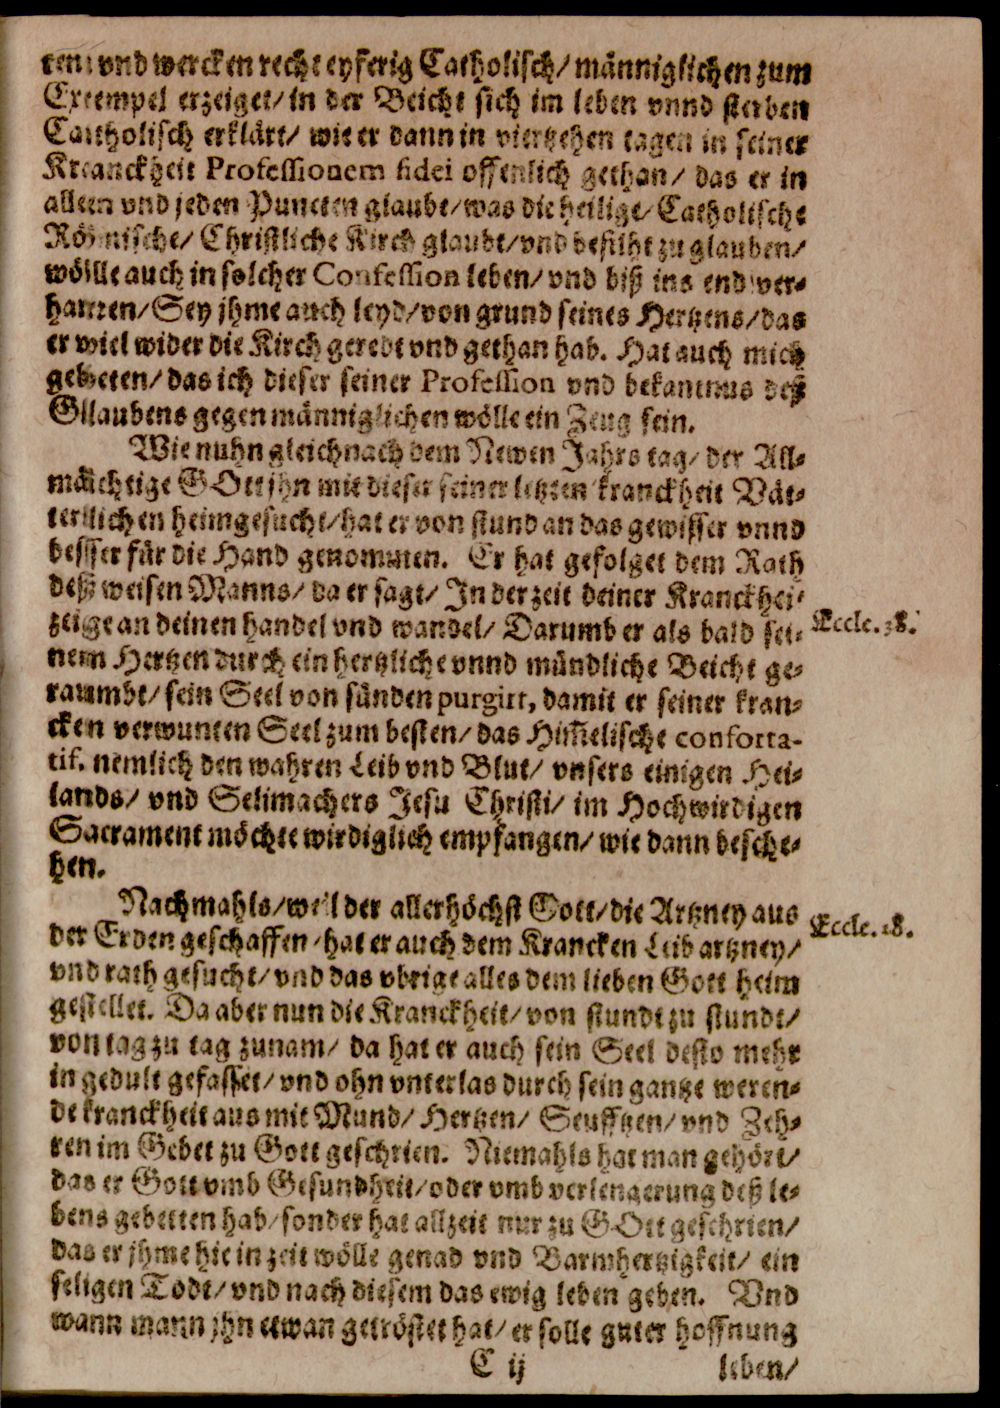 ten vnd wercken recht eyferig Catholisch/ männiglichen zum
Exeempel erzeiget/ in der Beicht sich im leben vnnd sterben
Cautholisch erklärt/ wie er dann in viertzehen tagen in seiner
Kreanckheit Professionem fidei offenlich gethan/ das er in
alleen vnd jeden Puncten glaubt/ was die heilige/ Catholische
Römische/ Christliche Kirch glaubt/ vnd befilht zu glauben/
wöille auch in solcher Confession leben/ vnd biß ins end ver⸗
harren/ Sey jhme auch leyd/ von grund seines Hertzens/ das
er wiel wider die Kirch geredt vnd gethan hab. Hat auch mich
gebeten/ das ich dieser seiner Profession vnd bekantnus deß
Gllaubens gegen männiglichen wölle ein Zeug sein.
Wie nuhn gleich nach dem Newen Jahrs tag/ der All⸗
mächtige GOtt jhn mit dieser seiner letzten kranckheit Vät⸗
terllichen heimgesucht/ hat er von stund an das gewisser vnnd
bessser für die Hand genommen. Er hat gefolget dem Rath
deß weisen Manns/ da er sagt/ In der zeit deiner Kranckhei⸗
zeige an deinen handel vnd wandel/ Darumb er als bald sei⸗
Eccle. 38.
nem Hertzen durch ein hertzliche vnnd mündliche Beicht ge⸗
raumbt/ sein Seel von sünden purgirt, damit er seiner kran⸗
cken verwunten Seel zum besten/ das Him̃elische conforta-
tif. nemlich den wahren Leib vnd Blut/ vnsers einigen Hei⸗
lands/ vnd Selimachers Jesu Christi/ im Hochwirdigen
Sacrament möchte wirdiglich empfangen/ wie dann besche⸗
hen.
Nachmahls/ weil der allerhöchst Gott/ die Artzney aus
Eccle. 18.
der Erden geschaffen/ hat er auch dem Krancken Leib artzney/
vnd rath gesucht/ vnd das vbrige alles dem lieben Gott heim
gestellet. Da aber nun die Kranckheit/ von stundt zu stundt/
von tag zu tag zunam/ da hat er auch sein Seel desto mehr
in gedult gefasset/ vnd ohn vnterlas durch sein gantze weren⸗
de kranckheit aus mit Mund/ Hertzen/ Seufftzen/ vnd Zeh⸗
ren im Gebet zu Gott geschrien. Niemahls hat man gehört/
das er Gott vmb Gesundheit/ oder vmb verlengerung deß le⸗
bens gebetten hab/ sonder hat allzeit nur zu GOtt geschrien/
das er jhme hie in zeit wölle genad vnd Barmhertzigkeit/ ein
seligen Todt/ vnd nach diesem das ewig leben geben. Vnd
wann mann jhn etwan getröstet hat/ er solle guter hoffnung
C ij
leben/